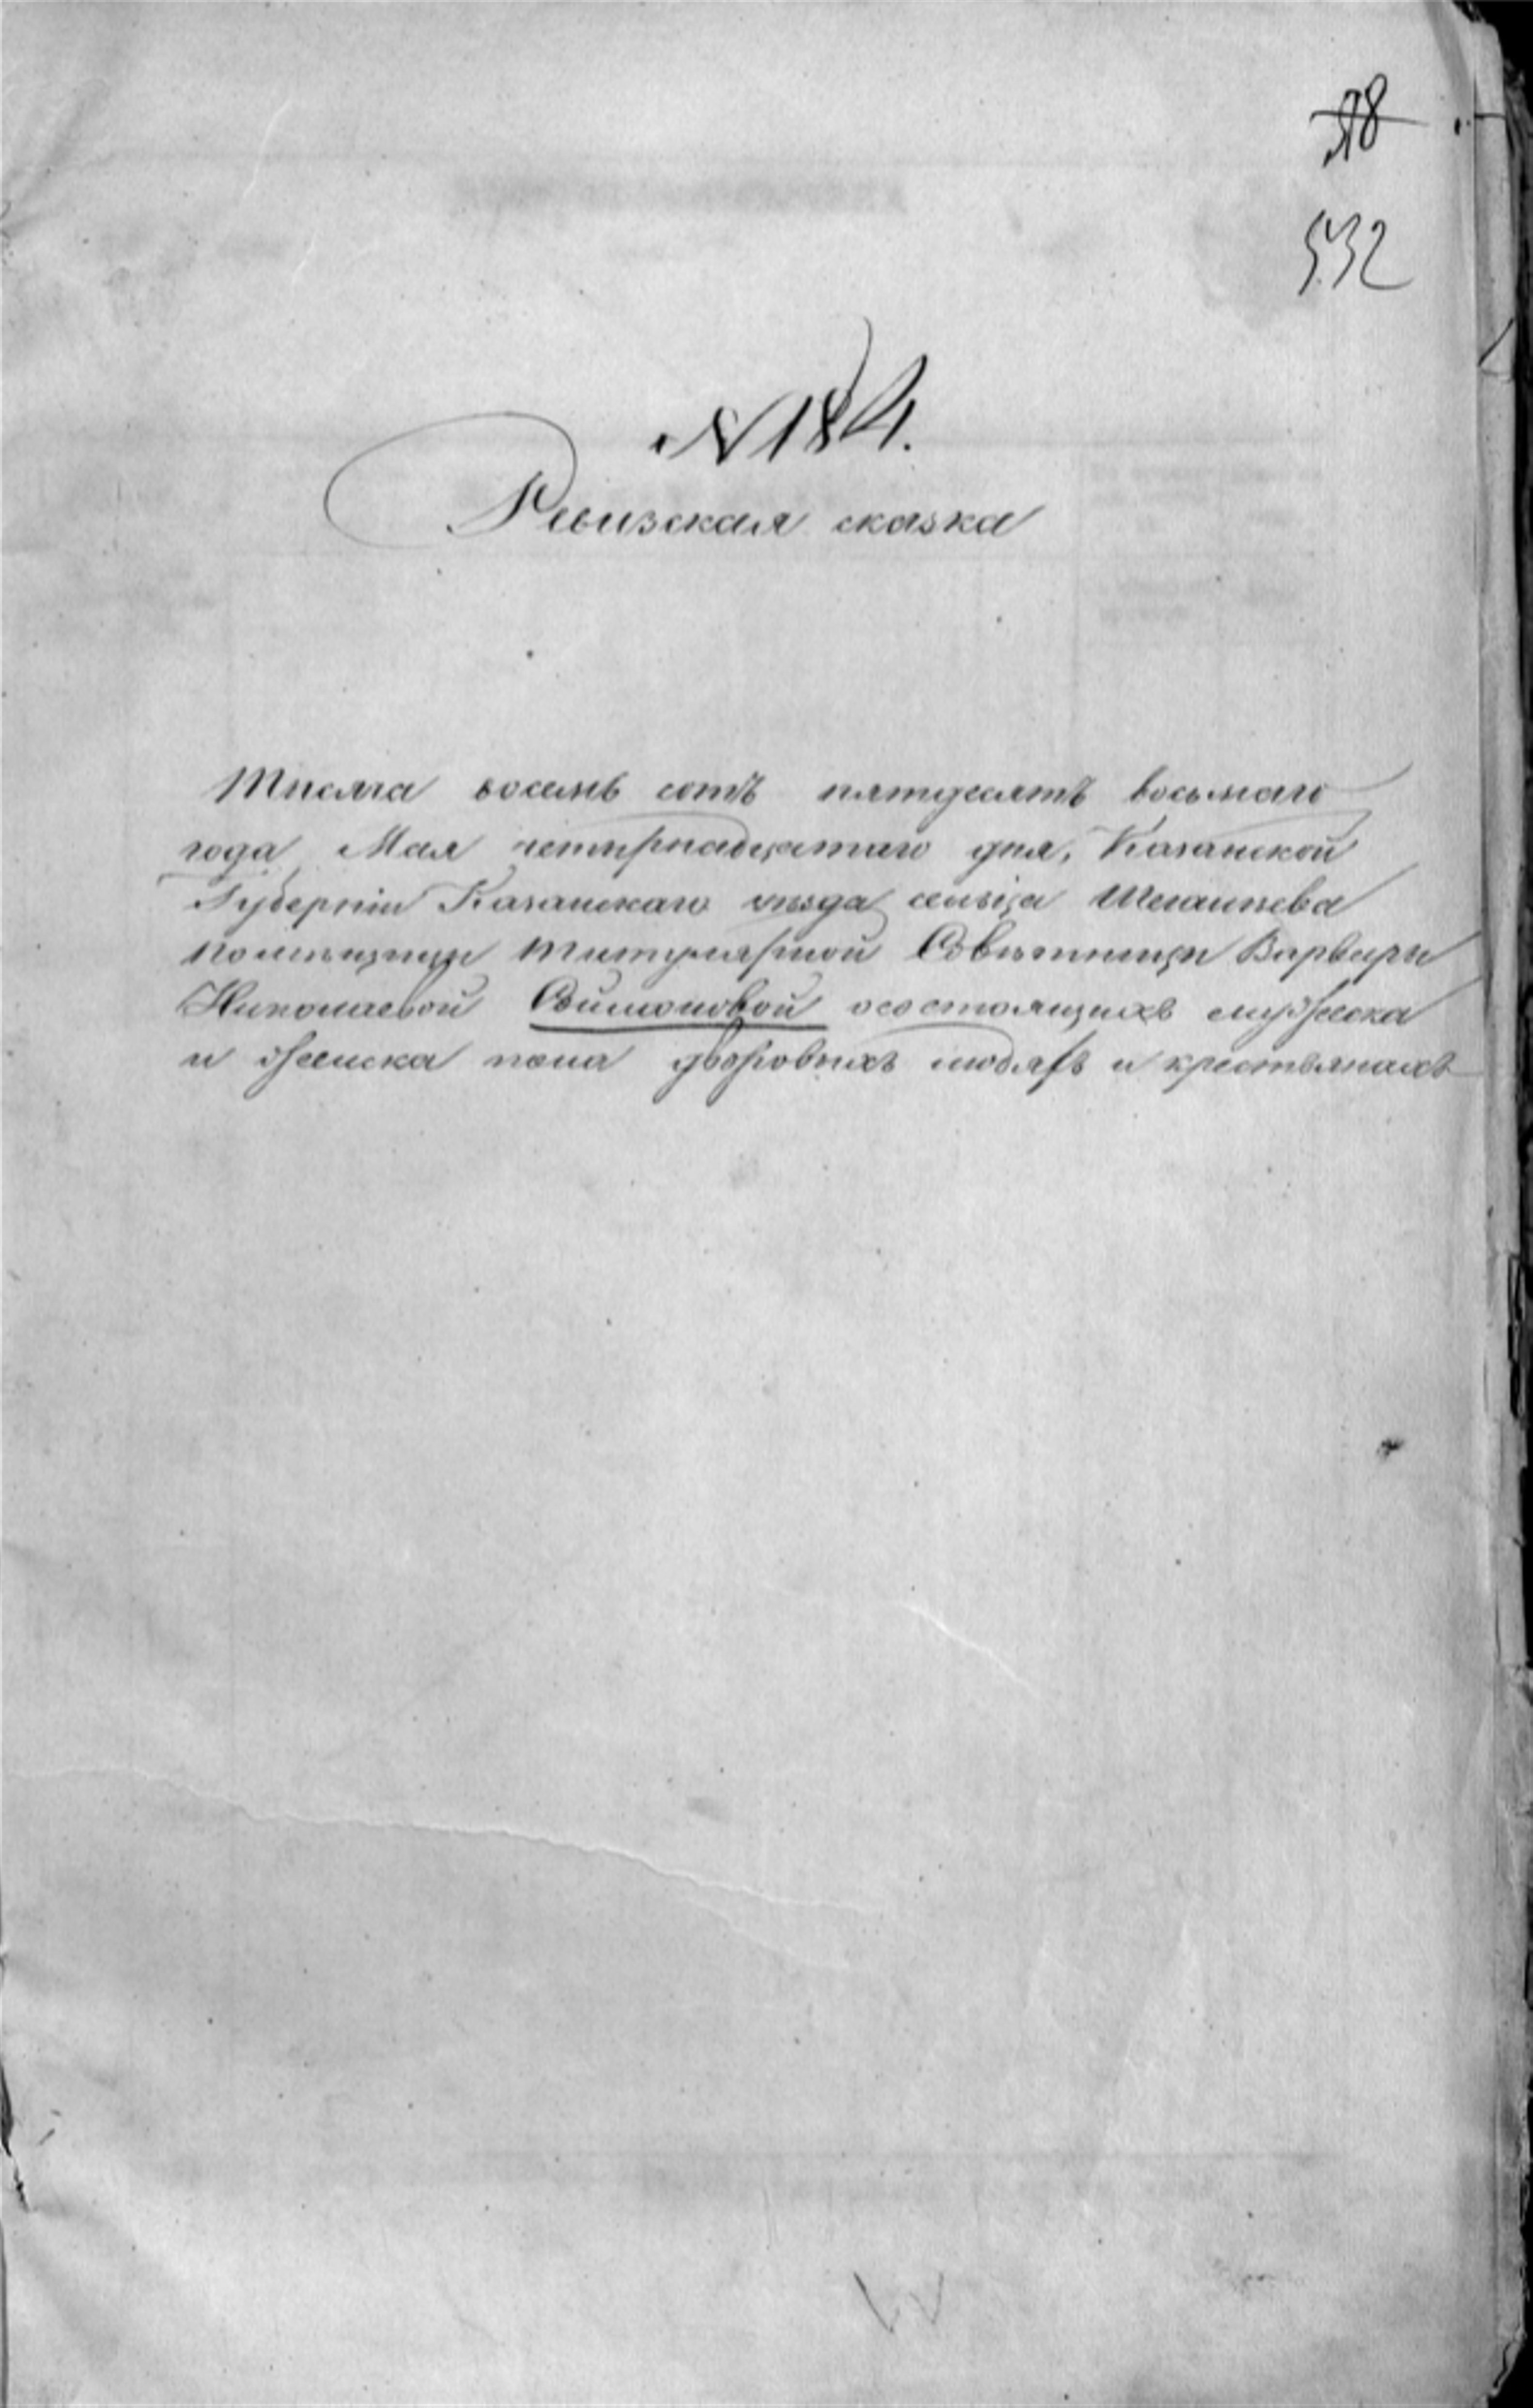 532
№ 184.
Ревизская сказка
Тысяча восемь сотъ пятдесятъ восьмаго
года Мая четырнадцатаго дня, Казанской
Губерніи Казанскаго уѣзда сельца
помѣщицы Титулярной Совѣтницы Варвары
Николаевой Симоновой о состоящихъ мужеска
и женска пола дворовыхъ людяхъ и крестьянахъ